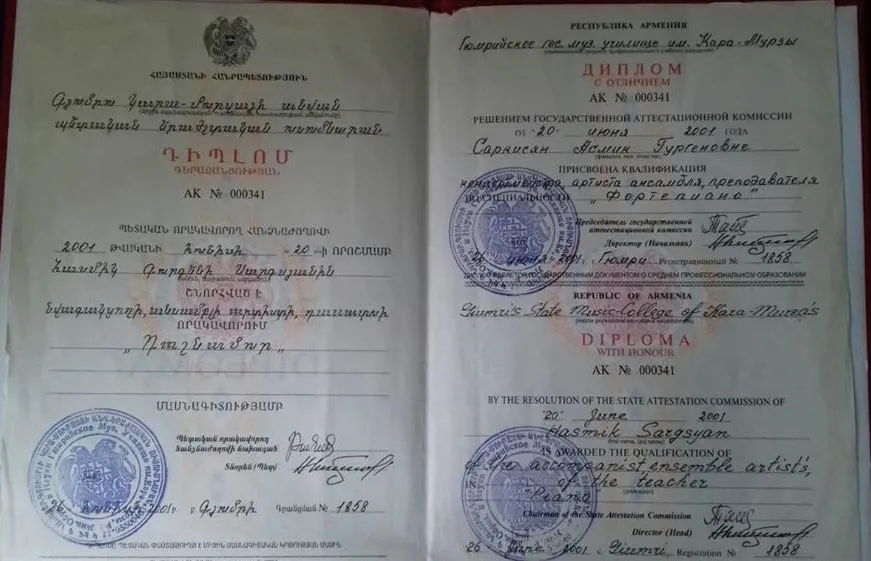 ՀԱՅԱՍՏԱՆԻ ՀԱՆՐԱՊԵՏՈՒԹՅՈՒՆ
Գյումրու Կարա-Մուրզայի անվան
պետական երաժշտական ուսումնարան
ԴԻՊԼՈՄ
ԳԵՐԱԶԱՆՑՈՒԹՅԱՆ
АК № 000341
ՊԵՏԱԿԱՆ ՈՐԱԿԱՎՈՐՈՂ ՀԱՆՁՆԱԺՈՂՈՎԻ
2001 ԹՎԱԿԱՆԻ Հունիսի « 20 »-ի ՈՐՈՇՄԱՄԲ
Հասմիկ Գուրգենի Սարգսյանին
ՇՆՈՐՀՎԱԾ Է
նվագակցողի, անսամբլի արտիստի, դասատուի
ՈՐԱԿԱՎՈՐՈՒՄ
„ Դաշնամուր „
ՄԱՍՆԱԳԻՏՈՒԹՅԱՄԲ
Պետական որակավորող
հանձնաժողովի նախագահ
Տնօրեն (Պետ)
26 հունիսի 2001 թ. Գյումրի Գրանցման № 1858
РЕСПУБЛИКА АРМЕНИЯ
Гюмрийское гос. муз. училище им. Кара-Мурзы
ДИПЛОМ
С ОТЛИЧИЕМ
АК № 000341
РЕШЕНИЕМ ГОСУДАРСТВЕННОЙ АТТЕСТАЦИОННОЙ КОМИССИИ
ОТ "20" июня 2001 ГОДА
Саргисян Асмик Гургеновне
(фамилия, имя, отчество)
ПРИСВОЕНА КВАЛИФИКАЦИЯ
концертмейстера, артиста ансамбля, преподавателя
ПО СПЕЦИАЛЬНОСТИ „Фортепиано"
Председатель государственной
аттестационной комиссии
Директор (Начальник)
26 июня 2001 г. Гюмри Регистрационный № 1858
ЯВЛЯЕТСЯ ГОСУДАРСТВЕННЫМ ДОКУМЕНТОМ О СРЕДНЕМ ПРОФЕССИОНАЛЬНОМ ОБРАЗОВАНИИ
REPUBLIC OF ARMENIA
Giumri's State Music-College of Kara-Murza's
DIPLOMA
WITH HONOUR
AK № 000341
BY THE RESOLUTION OF THE STATE ATTESTATION COMMISSION OF
"20" June 2001
Hasmik Sargsyan
AS AWARDED THE QUALIFICATION OF
of the accompanist, ensemble artist's,
IN of the teacher
"Piano"
Chairman of the State Attestation Commission
Director (Head)
26 June 2001 c. Giumri, Registration № 1858